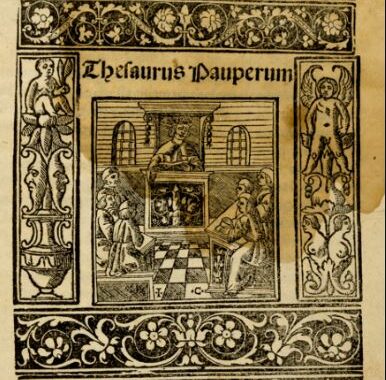 Thesaurus Pauperum
I C